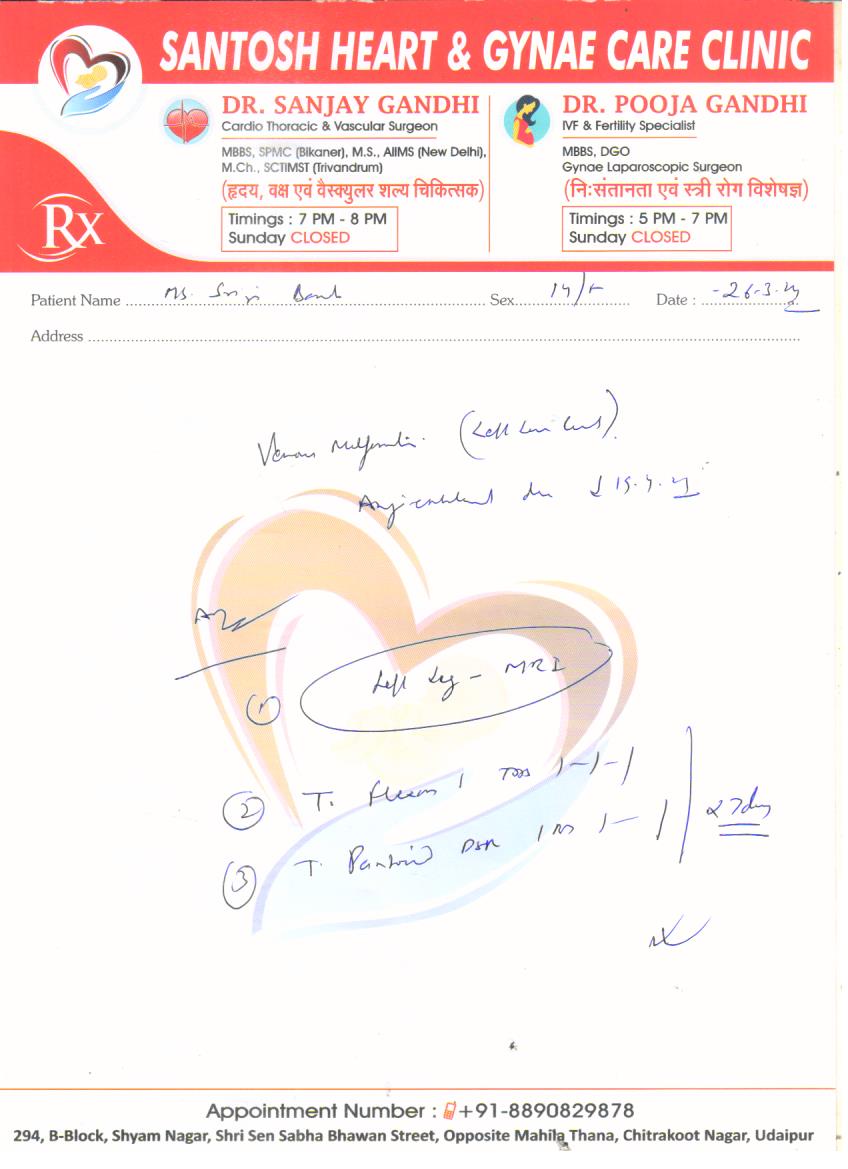 SANTOSH HEART & GYNAE CARE CLINIC
DR. SANJAY GANDHI
Cardio Thoracic & Vascular Surgeon
MBBS, SPMC (Bikaner), M.S., AIIMS (New Delhi),
M.Ch., SCTIMST (Trivandrum)
(हृदय, वक्ष एवं वैस्क्युलर शल्य चिकित्सक)
Timings : 7 PM - 8 PM
Sunday CLOSED
DR. POOJA GANDHI
IVF & Fertility Specialist
MBBS, DGO
Gynae Laparoscopic Surgeon
(निःसंतानता एवं स्त्री रोग विशेषज्ञ)
Timings : 5 PM - 7 PM
Sunday CLOSED
Rx
Patient Name Ms. Sex Date : 26-3-
Address
Venous (Left
Adv
1 Left Leg - MRI
2 T. 1 TDS 1-1-1
3 T. DSR 1-1
x 7 days
Appointment Number : +91-8890829878
294, B-Block, Shyam Nagar, Shri Sen Sabha Bhawan Street, Opposite Mahila Thana, Chitrakoot Nagar, Udaipur